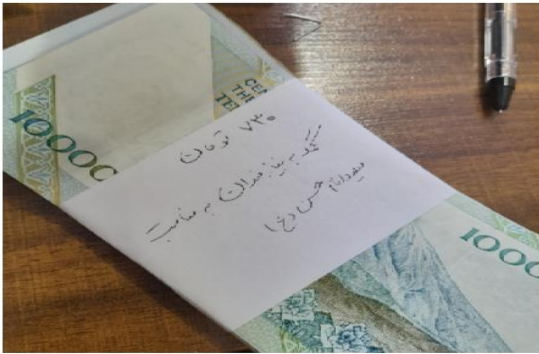 10000
CE
TH
TE
۷۳۰ تومان
کمک به نیازمندان به مناسبت
میلاد امام حسن (ع)
1000